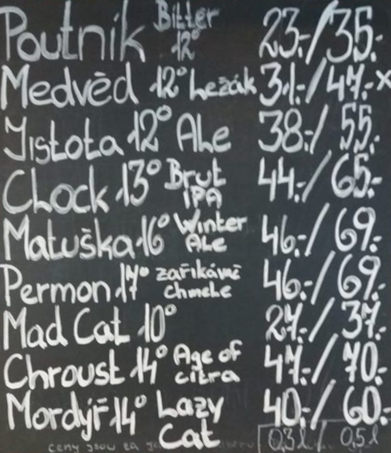 Poutník Bitter 12° 23.-/35.-
Medvěd 12° Ležák 31.-/47.-x
Jistota 12° Ale 38.-/55.-
Clock 13° Brut IPA 44.-/65.-
Matuška 16° Winter Ale 46.-/69.-
Permon 17° zaříkávač chmele 46.-/69.-
Mad Cat 10° 27.-/37.-
Chroust 14° Age of citra 47.-/70.-
Mordýř 14° Lazy Cat 40.-/60.-
ceny jsou za 0,3l 0,5l